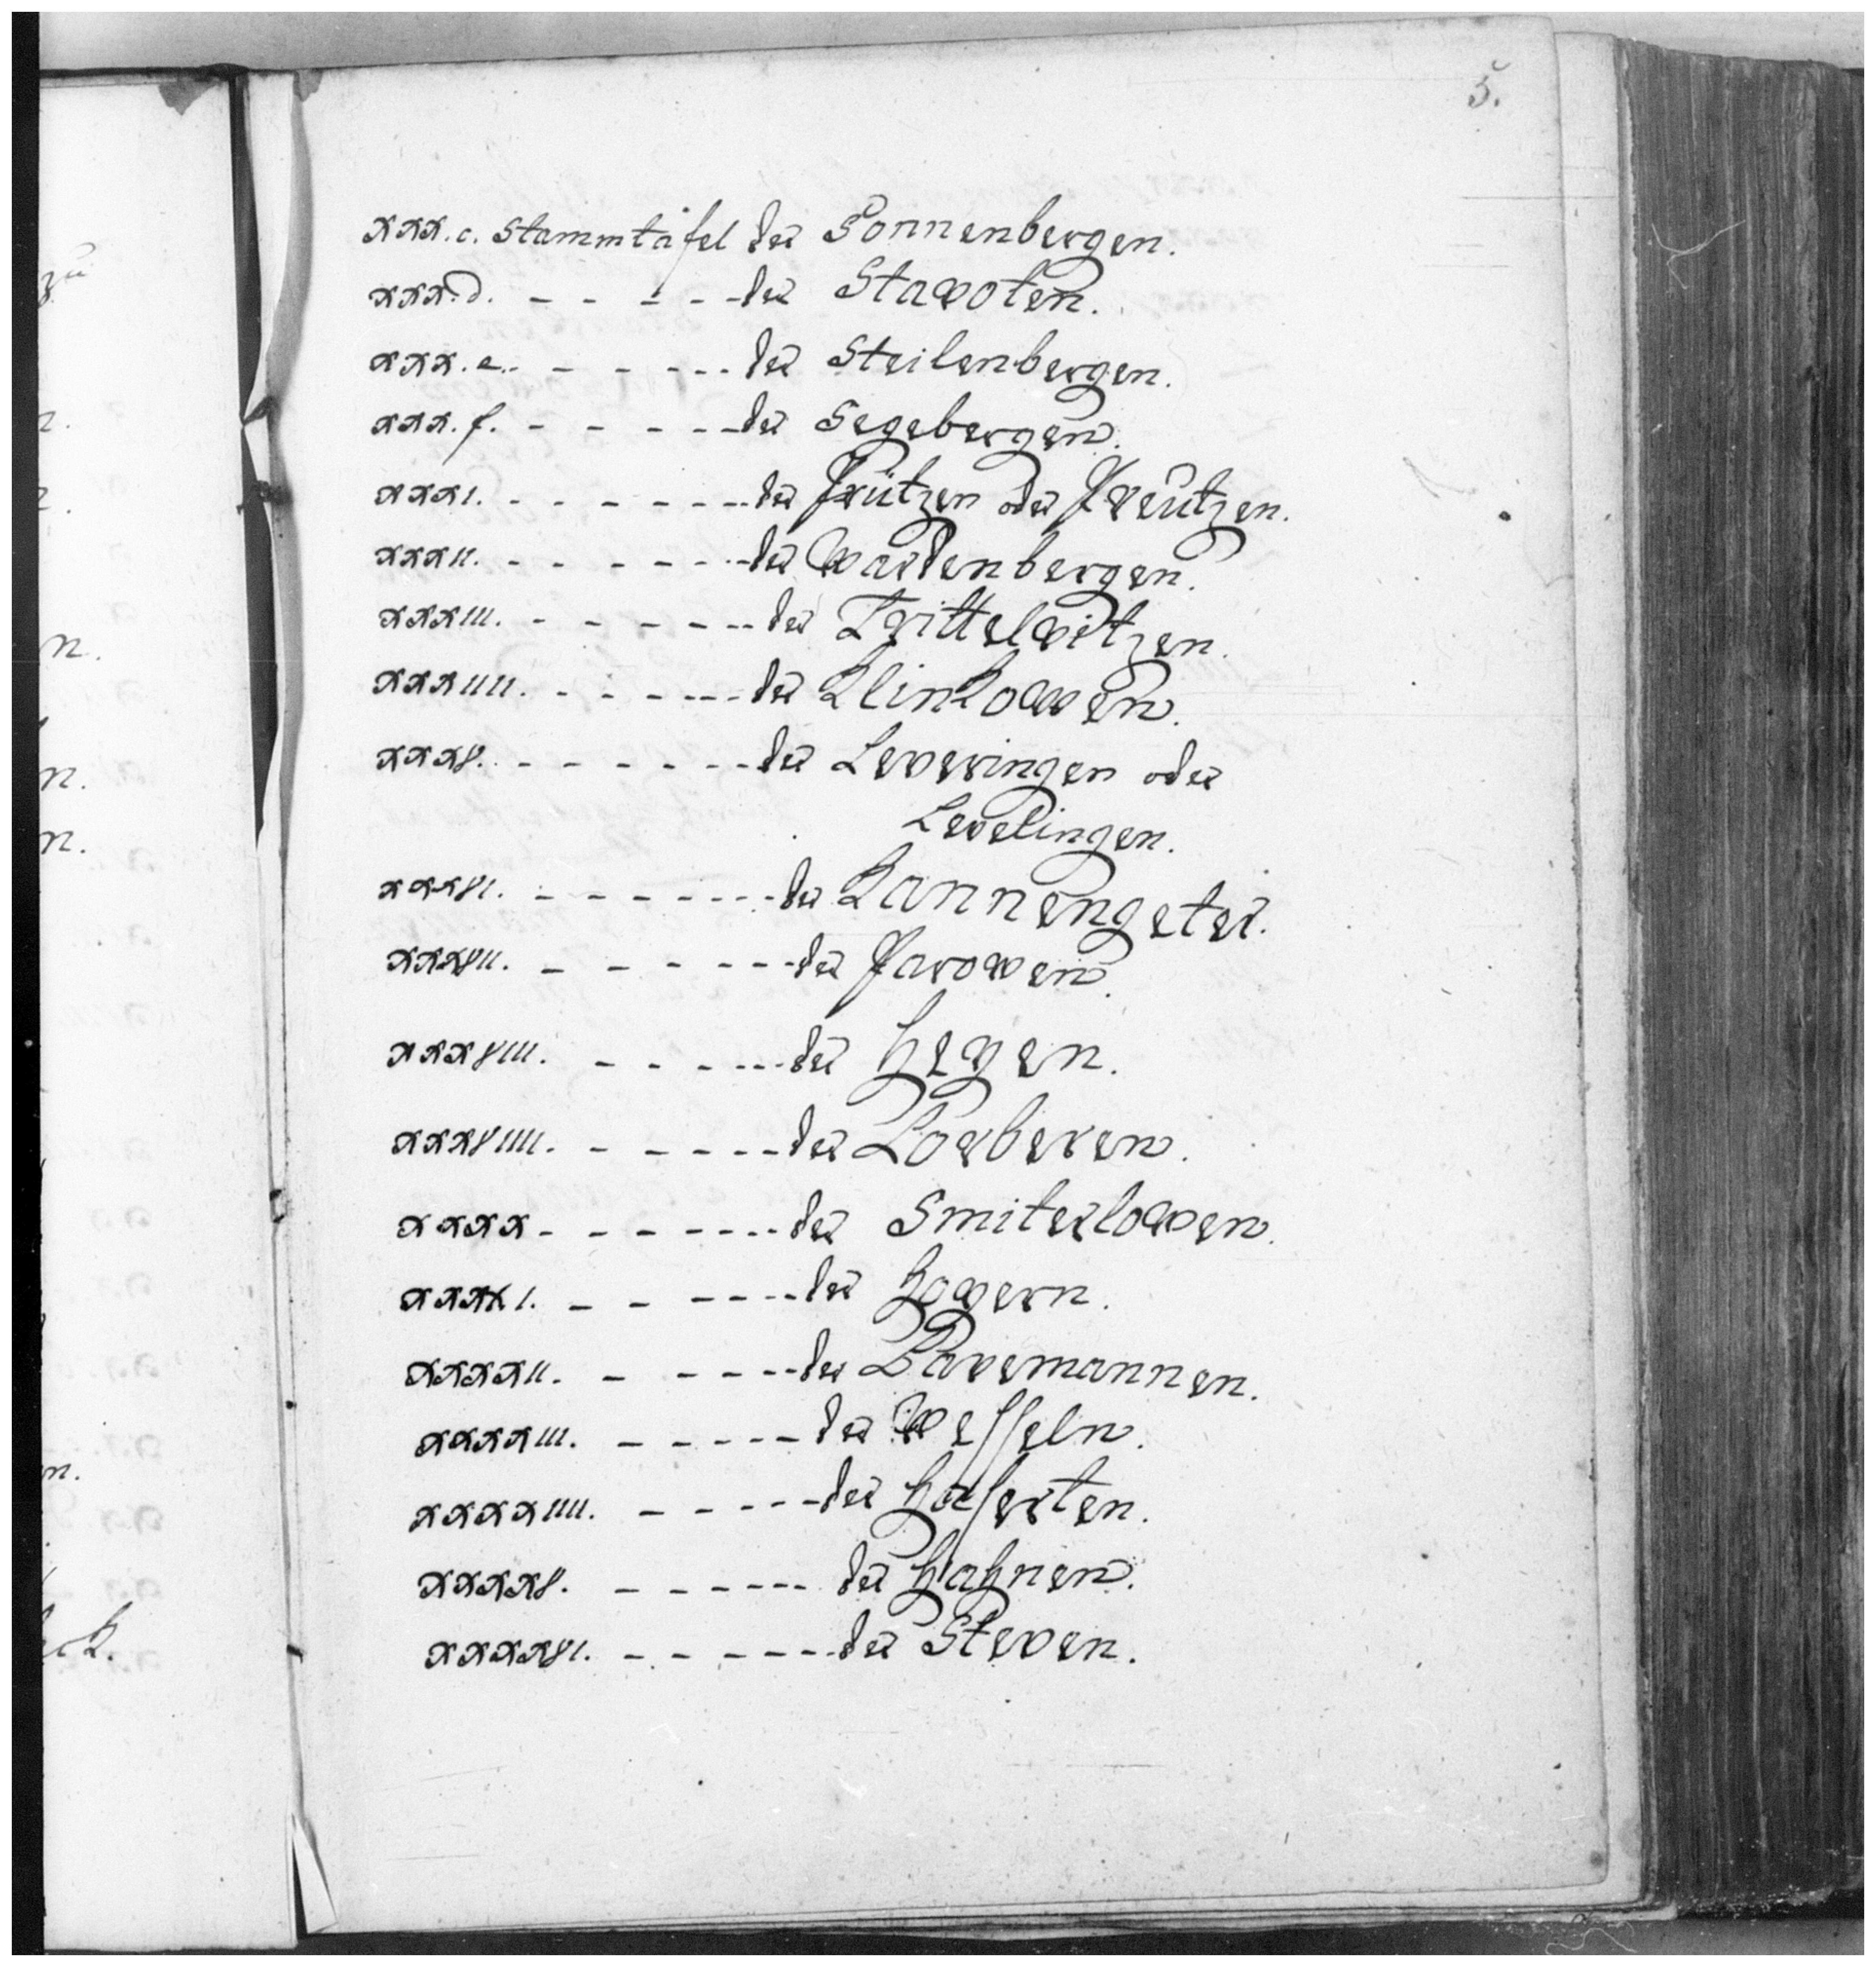 5.
xxx.c. Stammtafel der Sonnenbergen.
xxx.d. - - - - - der Stavoten.
xxx.e. - - - - - - der Steilenbergen.
xxx.f. - - - - - der Segebergen.
xxxı. - - - - - - - der Prützen oder Preützen.
xxxıı. - - - - - - - der Wardenbergen.
xxxııı. - - - - - - - der Trittelvitzen.
xxxıııı. - - - - - - - der Klinkowen.
xxx8. - - - - - - - der Leveringen oder
Levelingen.
xxx8ı. - - - - - - - - der Kannengeter.
xxx8ıı. - - - - - - - der Parowen.
xxx8ııı. - - - - - - der Heyen.
xxx8ıııı. - - - - - - der Lorberen.
xxxx - - - - - - - - der Smiterlowen.
xxxxı. - - - - - - der Hoyern.
xxxxıı. - - - - - der Bavemannen.
xxxxııı. - - - - - - der Wesseln.
xxxxıııı. - - - - - - der Hasserten.
xxxx8. - - - - - - der Hahnen.
xxxx8ı. - - - - - - - der Steven.
n.
n.
n.
n.
ck.